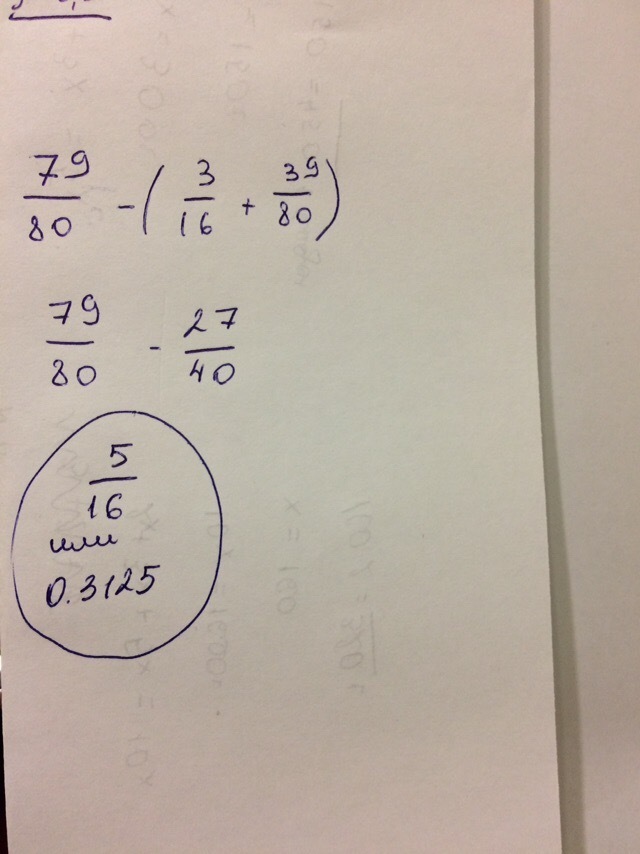 79/80 - (3/16 + 39/80)
79/80 - 27/40
5/16
или
0.3125